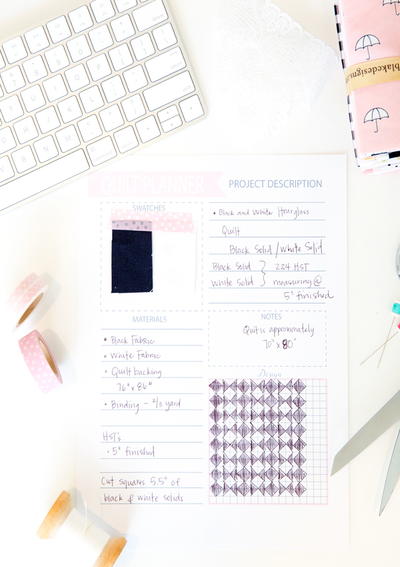 blakedesigns
QUILT PLANNER
PROJECT DESCRIPTION
SWATCHES
• Black and White Hourglass
Quilt
Black Solid / White Solid
Black Solid } 224 HST
White Solid } measuring @
5" finished
MATERIALS
• Black Fabric
• White Fabric
• Quilt backing
76" x 86"
• Binding -
yard
HSTs
• 5" finished
Cut squares 5.5" of
black & white solids
NOTES
Quilt is approximately
70" x 80"
Design